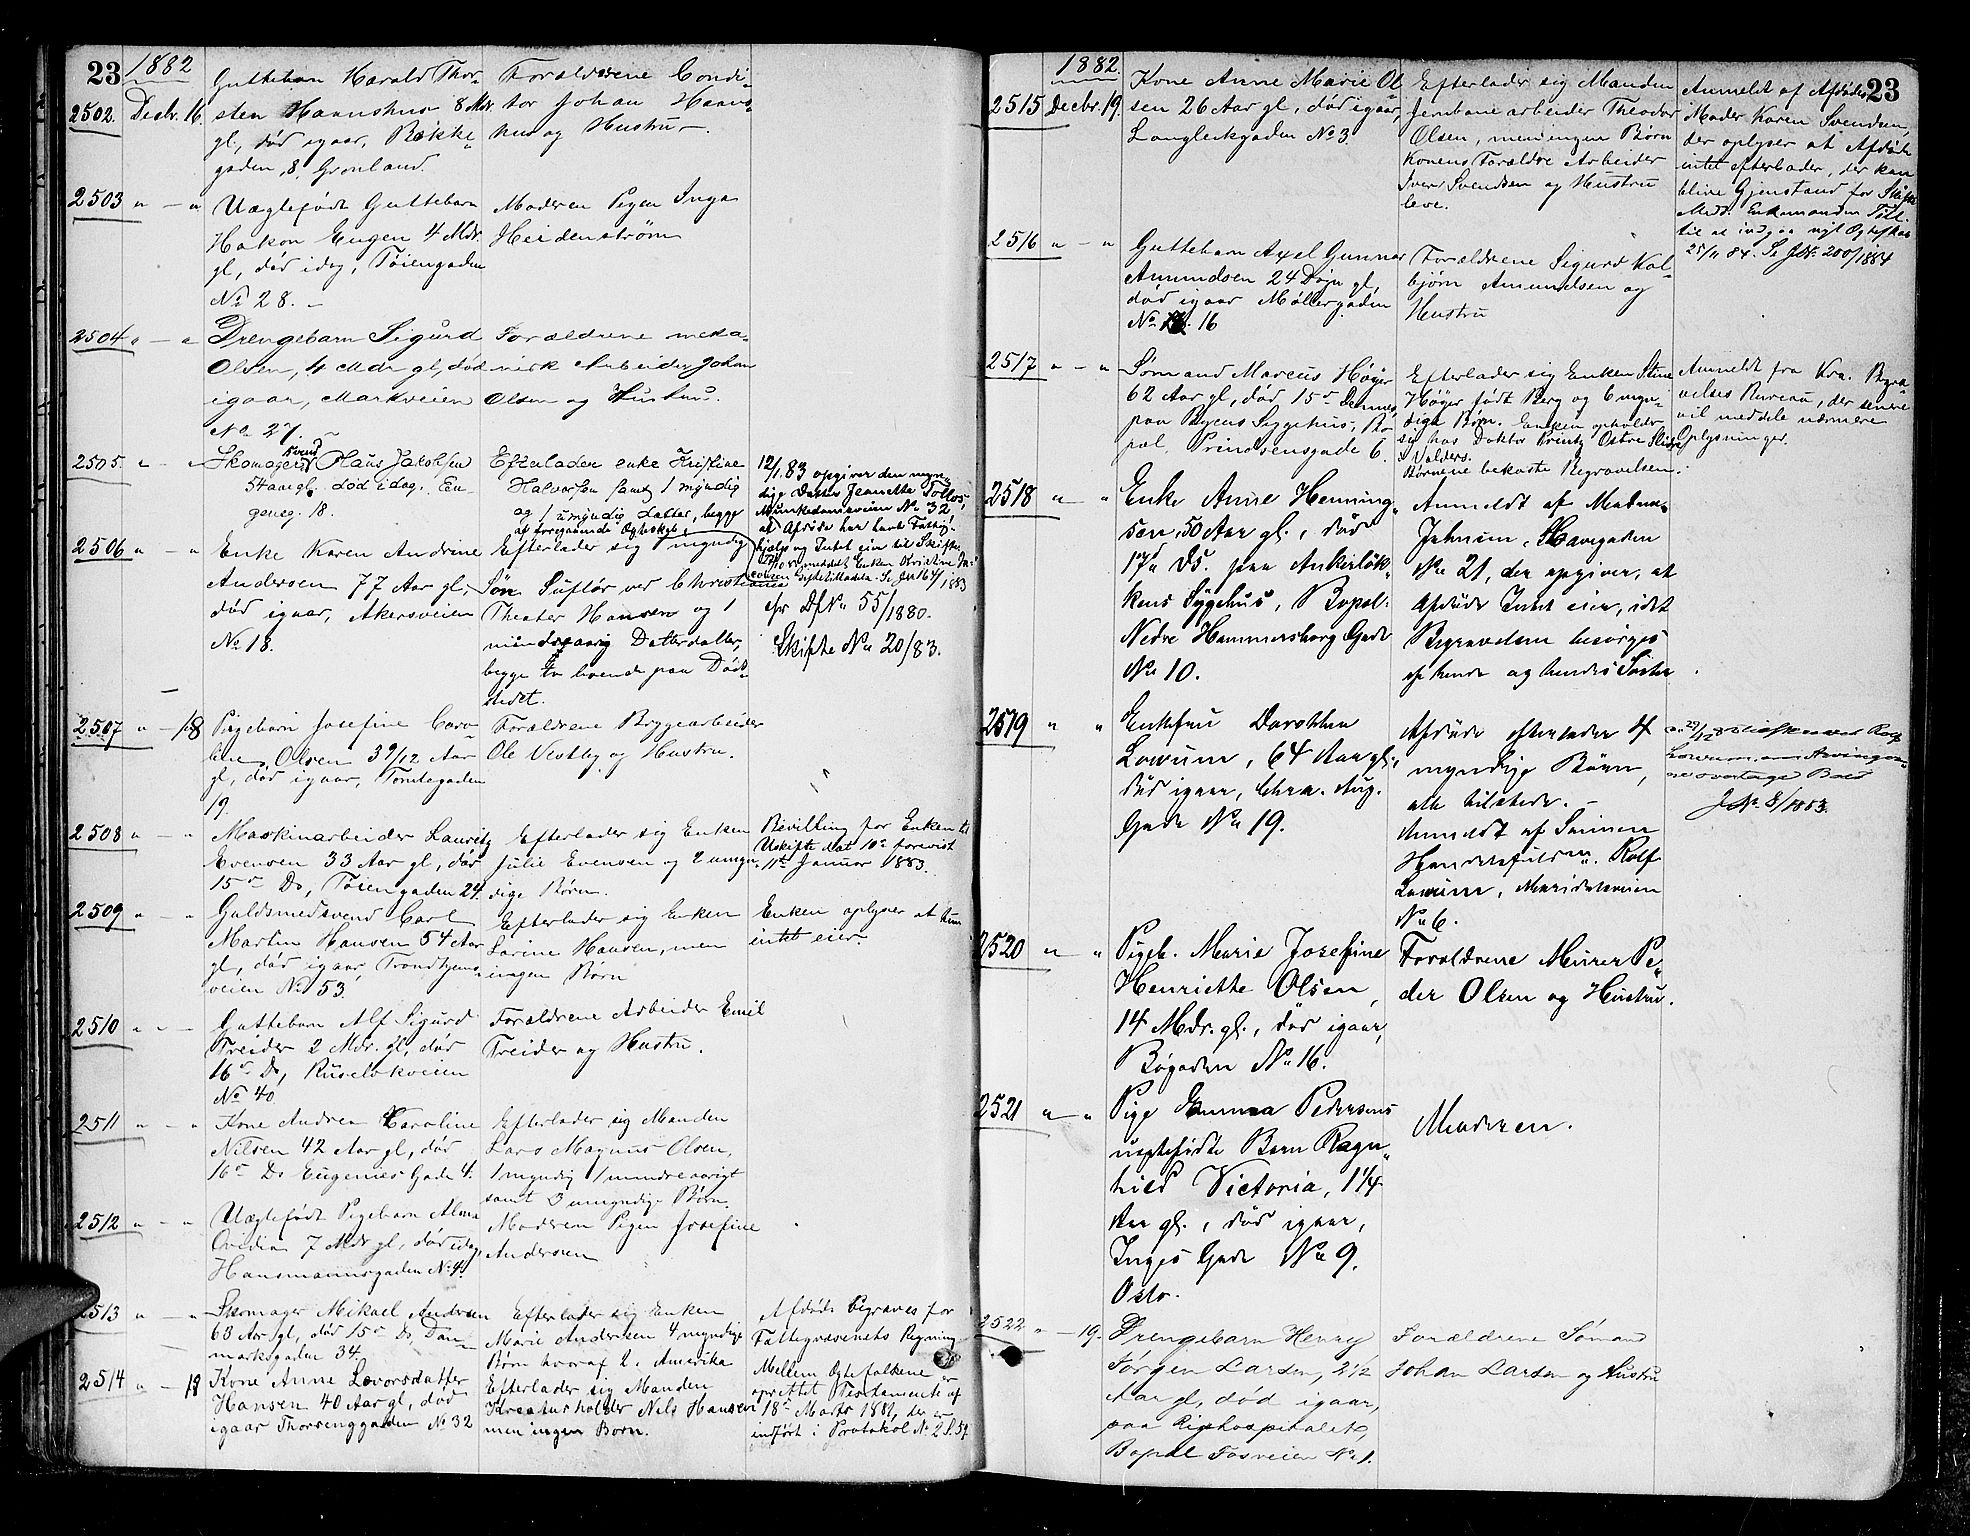 23
1882
2502. Decbr. 16.
Guttebarn Harald Thor-
sten Haanshus 8 Mdr
gl., død igaar, Bakke-
gaden, 8, Grønland.
Forældrene Condi-
tor Johan Haans-
hus og Hustru.
2503 " — "
Uægtefødt Guttebarn
Hakon Eugen 4 Mdr.
gl, død idag, Tøiengaden
No 28. —
Moderen Pigen Inga
Heidenstrøm
2504 " — "
Drengebarn Sigurd
Olsen, 4 Mdr gl, død
igaar, Markveien
No 27.
Forældrene meka-
nisk Arbeider Johan
Olsen og Hustru.
2505. " — "
Skomagersvend Hans Jacobsen
54 aar gl. død idag. Eu-
genieg. 18.
Efterlader enke Kristine
Halvorsen samt 1 myndig
og 1 umyndig Datter, begge
af foregaaende Ægteskab.
12/1. 83 opgiver den myn-
dige Datter Jeanette
Munkedamsveien No 32
at Afdøde har havt Fattig-
hjælp og Intet eier til Skifte
2506 " — "
Enke Karen Andrine
Andersen 77 Aar gl,
død igaar, Akersveien
No 18.
Efterlader sig 1 myndig
Søn Suflør ved Christiania
Theater Hansen og 1
mindreaarig Datterdatter,
begge to boende paa Død-
stedet.
cfr Df No 55/1880.
Skifte No 20/83.
2507 " — 18
Pigebarn Josefine Caro-
line Olsen 3 9/12 Aar
gl, død igaar, Tomtegaden
19.
Forældrene Bryggearbeider
Ole Vestby og Hustru.
2508 " — "
Maskinarbeider Lauritz
Evensen 33 Aar gl, død
15de Ds, Tøiengaden 24.
Efterlader sig Enken
Julie Evensen og 2 umyn-
dige Børn.
Bevilling for Enken til
Uskifte dat 10de forevist
11te Januar 1883.
2509 " — "
Guldsmedsvend Carl
Martin Hansen 54 Aar
gl, død igaar Trondhjems-
veien No 53.
Efterlader sig Enken
Larine Hansen, men
ingen Børn
Enken oplyser at hun
intet eier.
2510 " — "
Guttebarn Alf Sigurd
Treider 2 Mdr. gl, død
16de Ds, Ruseløkveien
No 40
Forældrene Arbeider Emil
Treider og Hustru.
2511 " — "
Kone Andrea Karoline
Nilsen 42 Aar gl, død
16de Ds Eugenies Gade 4.
Efterlader sig Manden
Lars Magnus Olsen,
1 myndig 1 mindreaarigt
samt 3 umyndige Børn
2512 " — "
Uægtefødt Pigebarn Alma
Ovidia 7 Mdr gl, død idag,
Hausmannsgaden No 4.
Moderen Pigen Josefine
Andersen
2513 " — "
Skomager Mikael Andersen
63 Aar gl, død 15de Ds, Dan-
marksgaden 34.
Efterlader sig Enken
Marie Andersen 4 myndige
Børn hvoraf 2 i Amerika
Afdøde begraves for
Fattigvæsenets Regning
2514 " — 18
Kone Anne Lovorsdatter
Hansen 40 Aar gl, død
igaar Thorvenggaden No 32
Efterlader sig Manden
Kreaturholder Nils Hansen
men ingen Børn.
Mellem Ægtefolkene er
oprettet Testamente af
18de Marts 1881, der er
indført i Protokol No 2 S. 57
23
1882.
2515 Decbr. 19.
Kone Anne Marie Ol-
sen 26 Aar gl, død igaar,
Langleikgaden No 3.
Efterlader sig Manden
Jernbanearbeider Theodor
Olsen, men ingen Børn
Konens Forældre Arbeider
Iver Svendsen og Hustru
leve.
Anmeldt af Afdødes
Moder Karen Svendsen,
der oplyser at Afdøde
intet efterlader, der kan
blive Gjenstand for Skifte
Medd. Enkemanden Till.
til at indgaa nyt Ægteskab
25/11 84. Se J.No 200/1884
2516 " — "
Guttebarn Axel Gunnar
Amundsen 24 Døgn gl,
død igaar Møllergaden
No 16
Forældrene Sigurd Kol-
bjørn Amundsen og
Hustru
2517 " — "
Sømand Marcus Høyer
62 Aar gl, død 15de Dennes
paa Byens Sygehus, Bo-
pæl. Prindsensgade 6.
Efterlader sig Enken Stine
Høyer født Berg og 6 myn-
dige Børn. Enken opholder
sig hos Doktor Printz Østre Slidre
Valders.
Børnene bekoste Begravelsen.
Anmeldt fra Kra. Begra-
velses Bureau, der senere
vil meddele nærmere
Oplysninger.
2518 " "
Enke Anne Henning-
sen, 50 Aar gl., død
17de Ds. paa Ankerløk-
kens Sygehus, Bopæl:
Nedre Hammersborg Gade
No 10.
Anmeldt af Madam
Johnsen, Havegaden
No 21, der opgiver, at
Afdøde Intet eier, idet
Begravelsen besørges
af hende og hendes Søster.
2519 " "
Enkefru Dorothea
Lowum, 64 Aar gl.,
død igaar, Chra. Aug.
Gade No 19.
Afdøde efterlader 4
myndige Børn,
alle tilstede. —
Anmeldt af Sønnen
Handelsfuldm. Rolf
Lowum, Maridalsveien
No 6.
J. No. 8/1883.
2520 " — "
Pigeb. Marie Josefine
Henriette Olsen,
14 Mdr. gl., død igaar,
Bøgaden No 16.
Forældrene Murer Pe-
der Olsen og Hustru.
2521 " — "
Pige Emma Pedersens
uægtefødte Barn Ragn-
hild Victoria, 1 1/4
Aar gl., død igaar,
Inges Gade No 9.
Oslo.
Moderen.
2522 " — 19.
Drengebarn Henry
Jørgen Larsen, 2 1/2
Aar gl, død igaar,
paa Rigshospitalet,
Bopæl Fosveien No 1.
Forældrene Sømand
Johan Larsen og Hustru